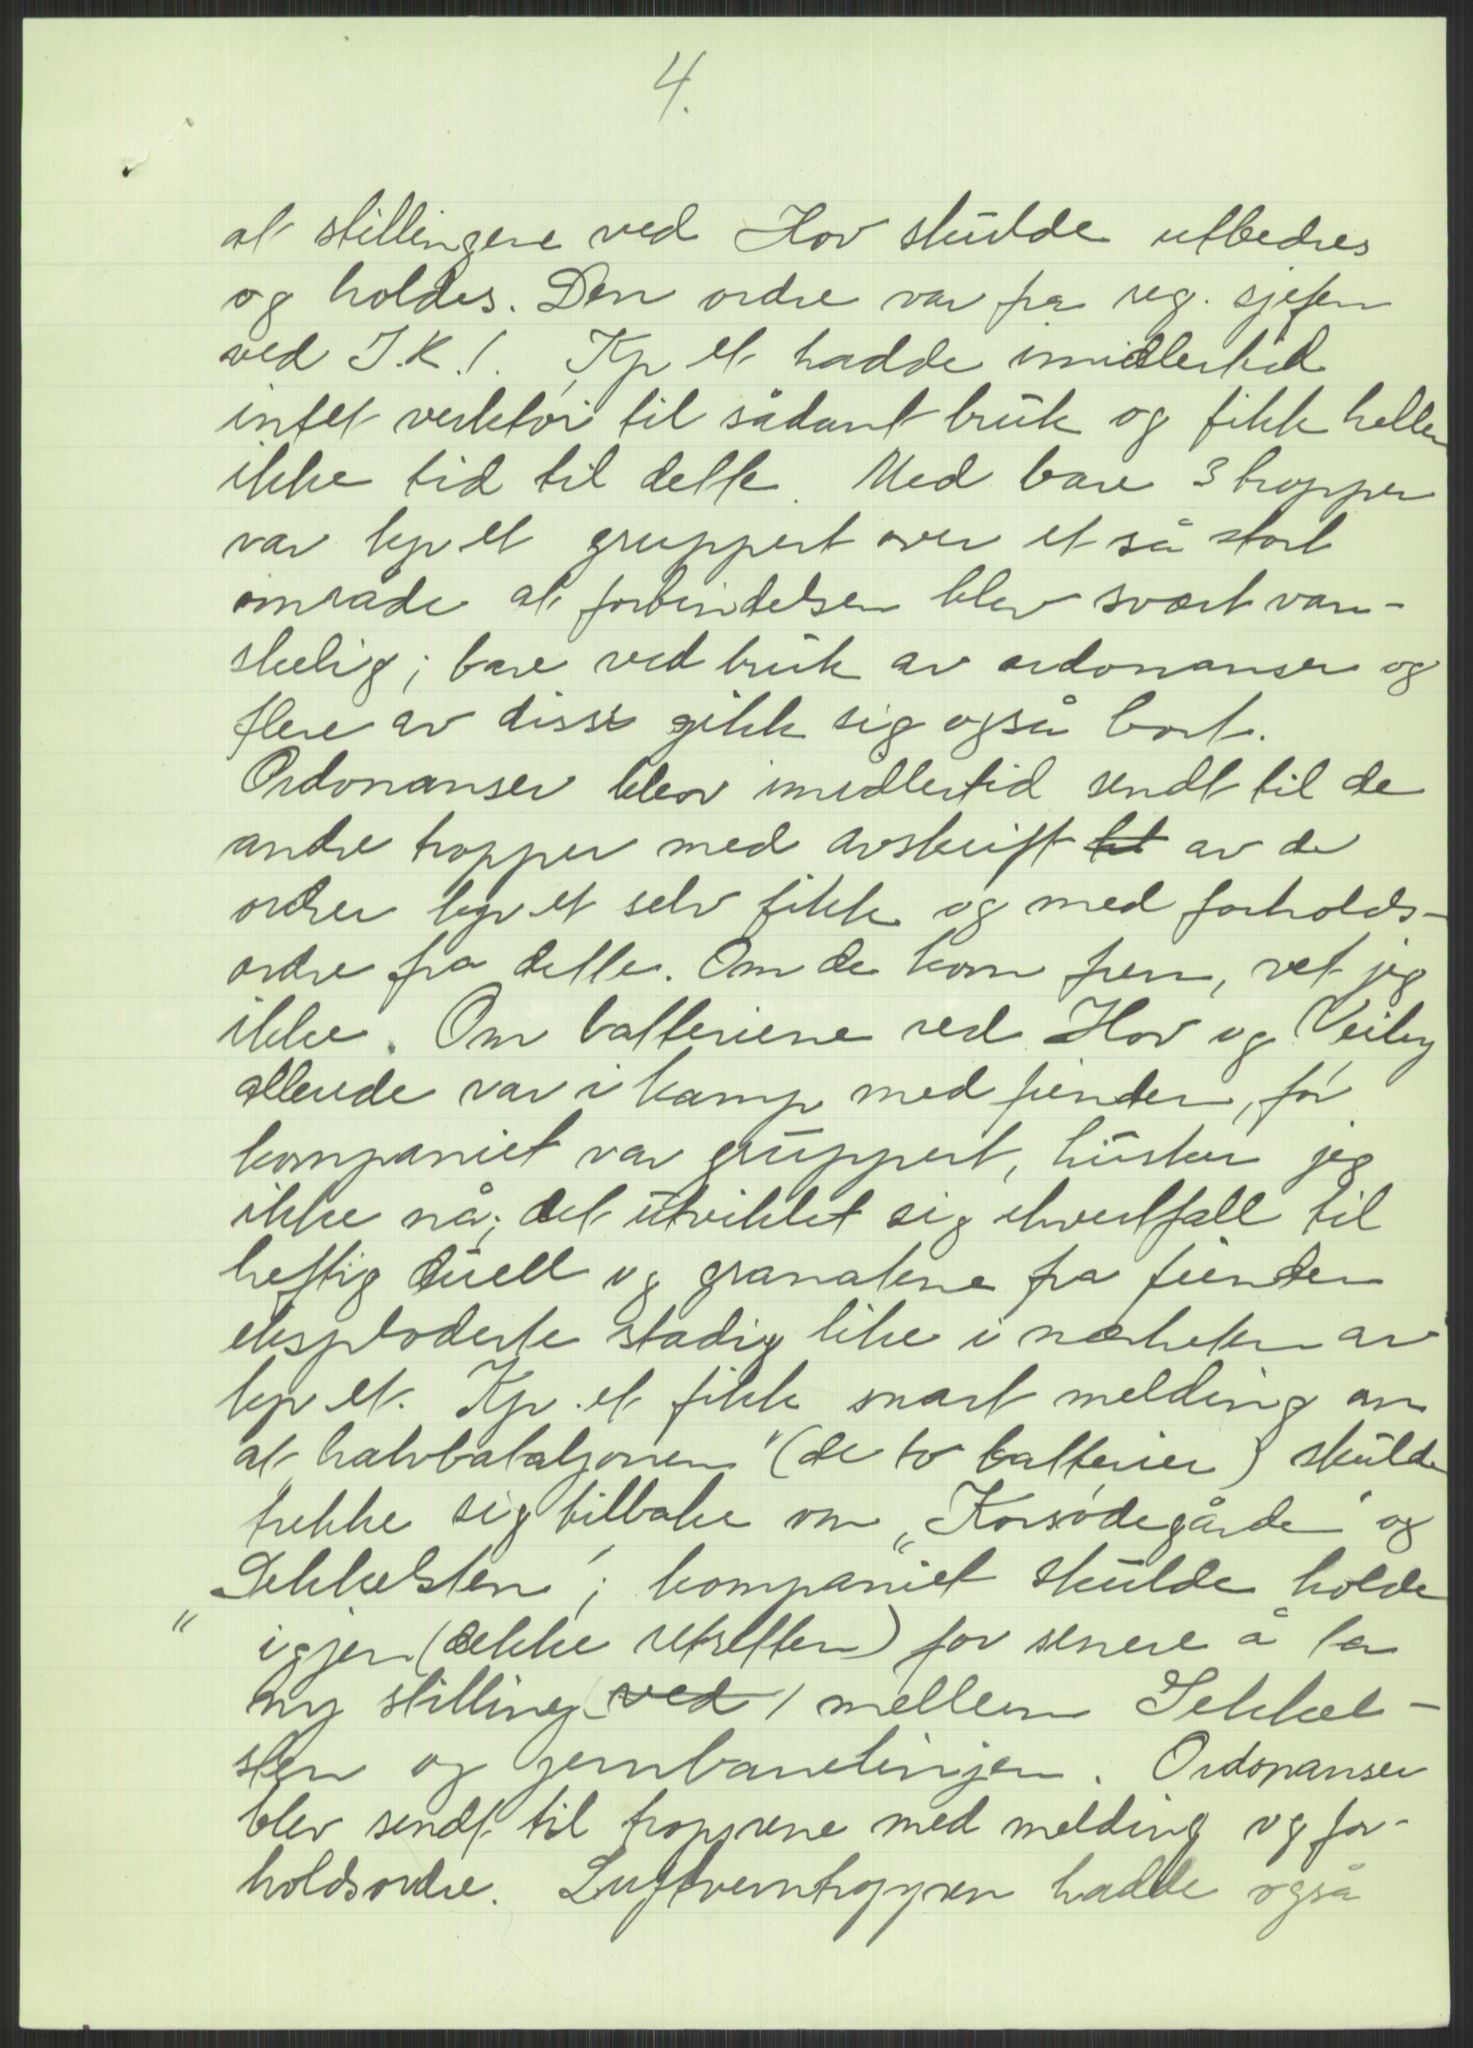 4.
at stillingene ved Hov skulde utbedres
og holdes. Den ordre var fra reg. sjefen
ved I.R.1. Kp et hadde imidlertid
intet verktøi til sådant bruk og fikk heller
ikke tid til dette. Med bare 3 tropper
var kp et gruppert over et så stort
område at forbindelsen blev svært van-
skelig; bare ved bruk av ordonanser og
flere av disse gikk sig også bort.
Ordonanser blev imidlertid sendt til de
andre tropper med avskrift av de
ordrer kp et selv fikk og med forholds-
ordre fra dette. Om de kom frem, vet jeg
ikke. Om batteriene ved Hov og Veiby
allerede var i kamp med fienden, før
kompaniet var gruppert, husker jeg
ikke nå; det utviklet sig ihvertfall til
heftig duell og granatene fra fienden
eksploderte stadig like i nærheten av
kp et. Kp. et fikk snart melding om
at halvbataljonen (de to batterier) skulde
trekke sig tilbake om "Korsødegården" og
"Sekkelsten"; kompaniet skulde holde
igjen (dekke retretten) for senere å ta
ny stilling ved mellem Sekkel-
sten og jernbanelinjen. Ordonanser
blev sendt til troppene med melding og for-
holdsordre. Luftverntroppen hadde også